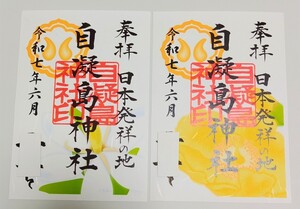 奉拝 日本発祥の地
自凝島神社
自凝島神社印
令和七年六月
奉拝 日本発祥の地
自凝島神社
自凝島神社印
令和七年六月